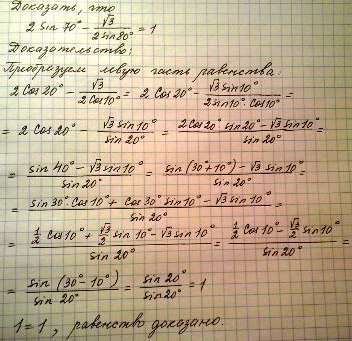 Доказать, что
2 Sin 70° - √3/(2 sin 80°) = 1
Доказательство:
Преобразуем левую часть равенства:
2 Cos 20° - √3/(2 Cos 10°) = 2 Cos 20° - (√3 sin 10°)/(2 sin 10° · Cos 10°) =
= 2 Cos 20° - (√3 sin 10°)/(sin 20°) = (2 Cos 20° sin 20° - √3 sin 10°)/(sin 20°) =
= (sin 40° - √3 sin 10°)/(sin 20°) = (sin (30° + 10°) - √3 sin 10°)/(sin 20°) =
= (sin 30° Cos 10° + Cos 30° sin 10° - √3 sin 10°)/(sin 20°) =
= (1/2 Cos 10° + √3/2 sin 10° - √3 sin 10°)/(sin 20°) = (1/2 Cos 10° - √3/2 sin 10°)/(sin 20°) =
= (sin (30° - 10°))/(sin 20°) = (sin 20°)/(sin 20°) = 1
1 = 1, равенство доказано.